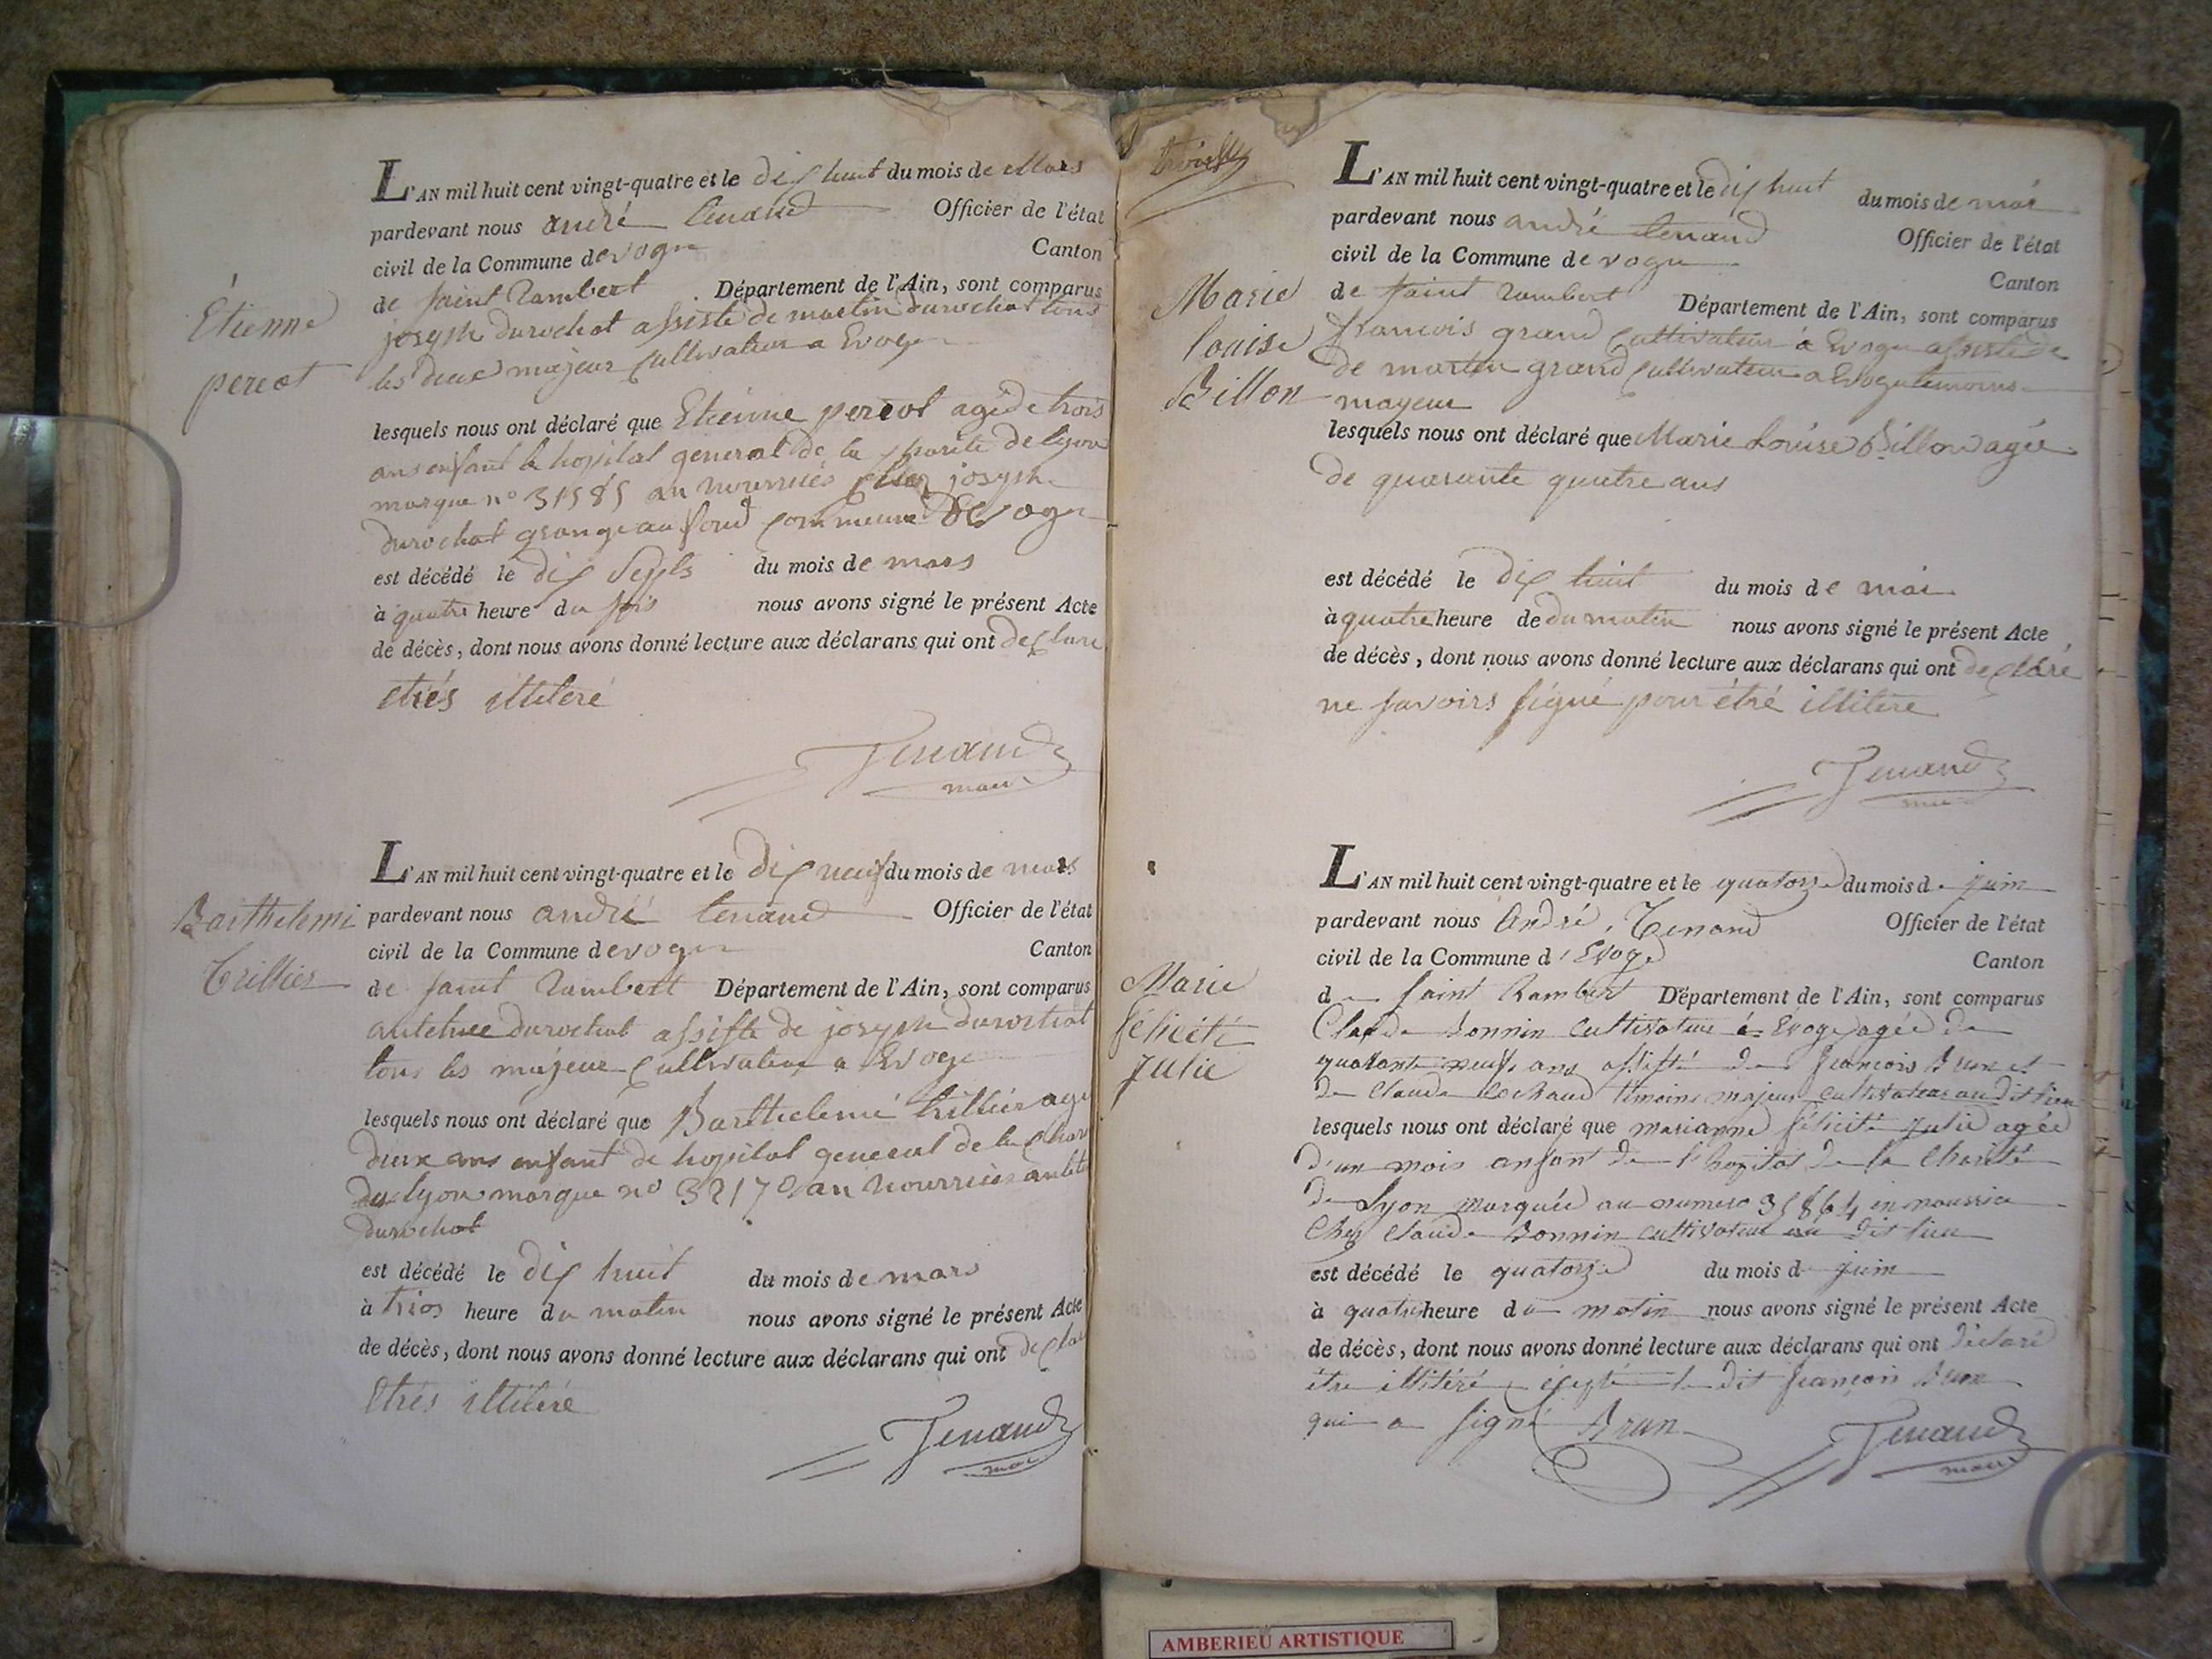 L'AN mil huit cent vingt-quatre et le dix huit du mois de Mars
pardevant nous andré tenand Officier de l'état
civil de la Commune devoge Canton
de saint Rambert Département de l'Ain, sont comparus
joseph durochat assisté de martin durochat tous
les deux majeur cultivateur a Evoge
Étienne
percot
lesquels nous ont déclaré que Etienne percot agé de trois
ans enfant de hopital general de la charité de lyon
marque no 31585 an nourrices chez joseph
durochat grange au fond commune devoge
est décédé le dix septs du mois de mars
à quatre heure du soir nous avons signé le présent Acte
de décès, dont nous avons donné lecture aux déclarans qui ont declare
etrés illiteré
Tenand
maire
L'AN mil huit cent vingt-quatre et le dix neuf du mois de mars
Barthelemi
trillier
pardevant nous andré tenand Officier de l'état
civil de la Commune devoge Canton
de saint Rambert Département de l'Ain, sont comparus
durochat assiste de joseph durochat
tous les majeur cultivateur a Evoge
lesquels nous ont déclaré que Barthelemi trillier agé
deux ans enfant de hopital general de la
de lyon marque no an nourrices
durochat
est décédé le dix huit du mois de mars
à trios heure du matin nous avons signé le présent Acte
de décès, dont nous avons donné lecture aux déclarans qui ont
Etrés illiteré
Tenand
maire
L'AN mil huit cent vingt-quatre et le dix huit du mois de mai
pardevant nous andré tenand Officier de l'état
civil de la Commune devoge Canton
de saint rambert Département de l'Ain, sont comparus
Marie
louise
Billon
francois grand cultivateur à Evoge assisté de
de martin grand cultivateur a Evoge temoins
mayeur
lesquels nous ont déclaré que Marie Louise Billon agée
de quarante quatre ans
est décédé le dix huit du mois de mai
à quatre heure de du matin nous avons signé le présent Acte
de décès, dont nous avons donné lecture aux déclarans qui ont declaré
ne savoirs signé pour étré illitere
Tenand
L'AN mil huit cent vingt-quatre et le quatorze du mois de juin
pardevant nous André Tenand Officier de l'état
civil de la Commune d'Evoge Canton
de saint Rambert Département de l'Ain, sont comparus
Marie
félicité
julie
Claude Bonnin cultivateur à Evoge agée de
quarante neuf ans assisté de francois Brun et
de Claude Bochaud temoins majeur cultivateur au dit lieu
lesquels nous ont déclaré que marianne félicité julie agée
d'un mois anfant de l'hopital de la Charité
de Lyon marquée au numero 35864 en nourrice
Chez Claude Bonnin cultivateur au dit lieu
est décédé le quatorze du mois de juin
à quatre heure du matin nous avons signé le présent Acte
de décès, dont nous avons donné lecture aux déclarans qui ont déclaré
être illitéré éxepté le dit francois Brun
qui a signé Brun
Tenand
maire
AMBERIEU ARTISTIQUE